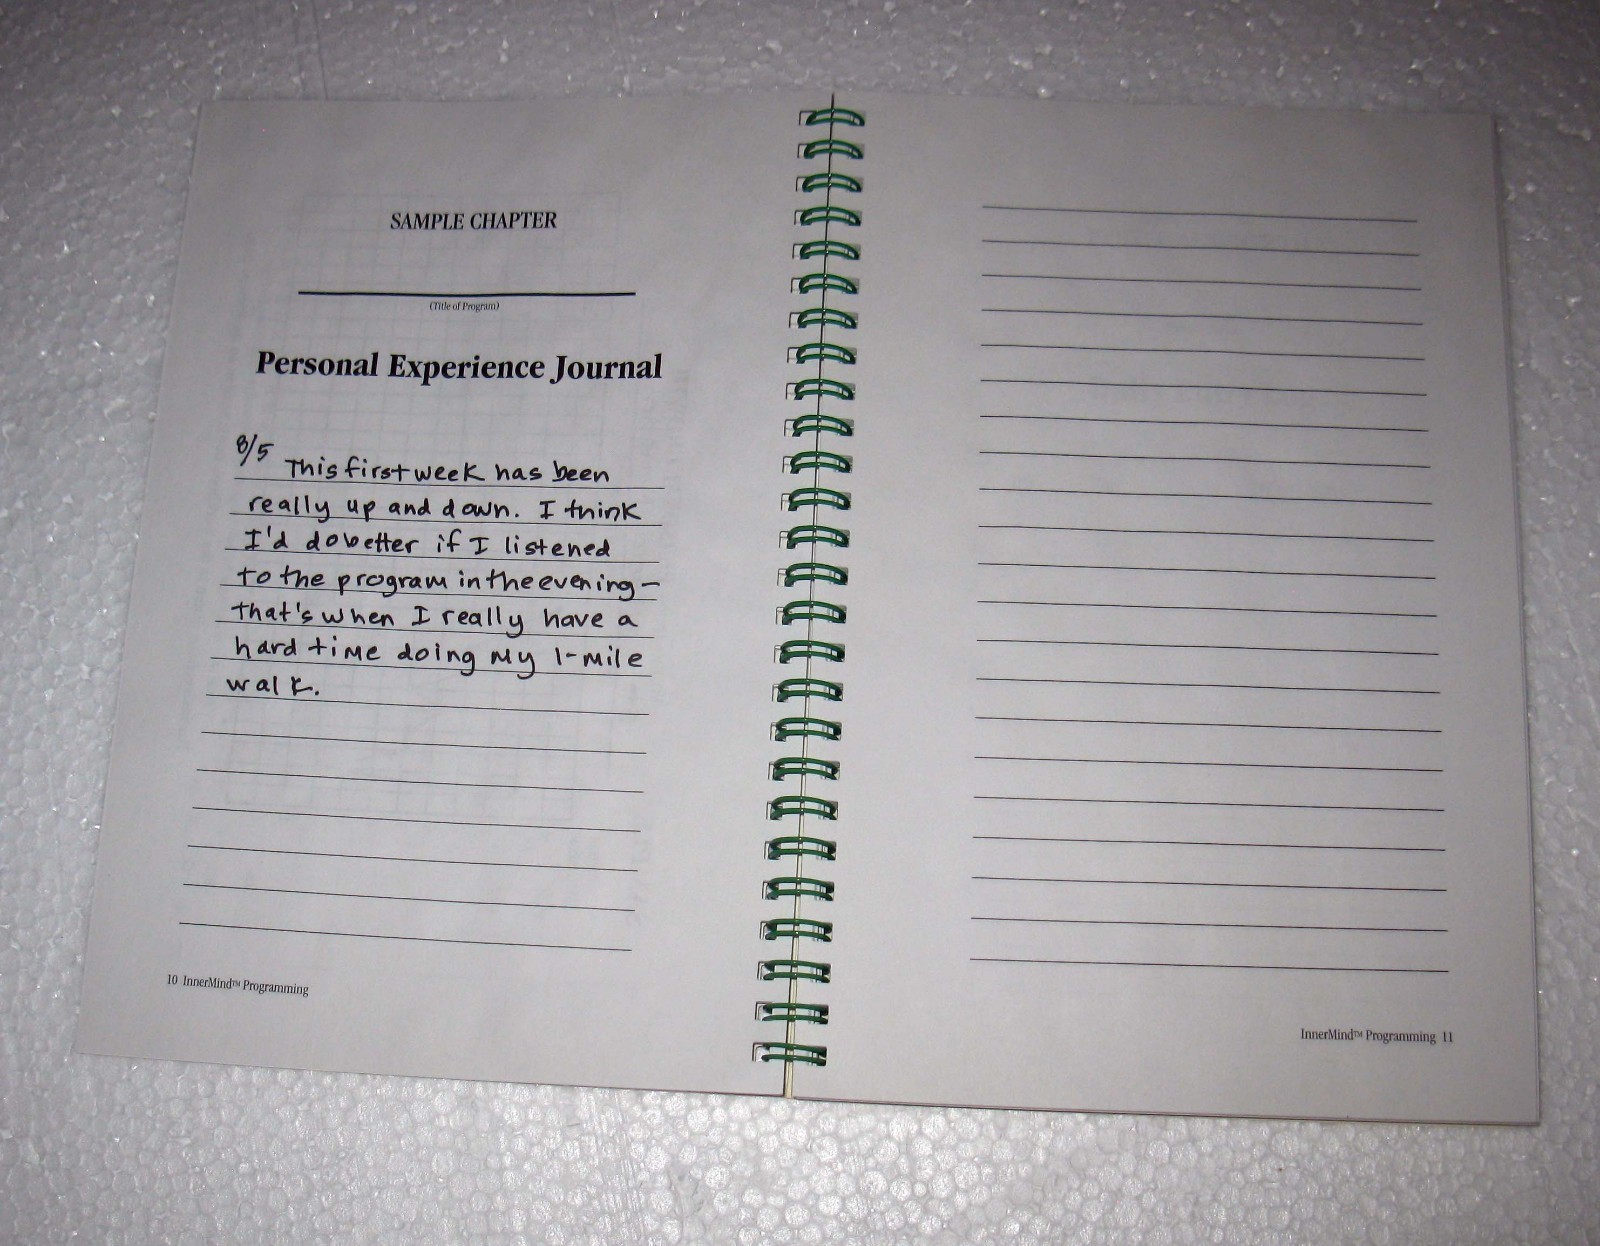 SAMPLE CHAPTER
(Title of Program)
Personal Experience Journal
8/5 This first week has been
really up and down. I think
I'd do better if I listened
to the program in the evening—
that's when I really have a
hard time doing my 1-mile
walk.
10 InnerMind™ Programming
InnerMind™ Programming 11